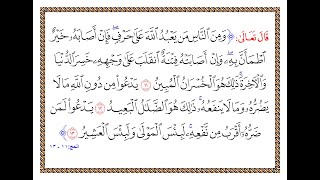 قَالَ تَعَالَى: ﴿وَمِنَ ٱلنَّاسِ مَن يَعْبُدُ ٱللَّهَ عَلَىٰ حَرْفٍ ۖ فَإِنْ أَصَابَهُۥ خَيْرٌ
ٱطْمَأَنَّ بِهِۦ ۖ وَإِنْ أَصَابَتْهُ فِتْنَةٌ ٱنقَلَبَ عَلَىٰ وَجْهِهِۦ خَسِرَ ٱلدُّنْيَا
وَٱلْـَٔاخِرَةَ ۚ ذَٰلِكَ هُوَ ٱلْخُسْرَانُ ٱلْمُبِينُ ۝١١ يَدْعُوا۟ مِن دُونِ ٱللَّهِ مَا لَا
يَضُرُّهُۥ وَمَا لَا يَنفَعُهُۥ ۚ ذَٰلِكَ هُوَ ٱلضَّلَٰلُ ٱلْبَعِيدُ ۝١٢ يَدْعُوا۟ لَمَن
ضَرُّهُۥٓ أَقْرَبُ مِن نَّفْعِهِۦ ۚ لَبِئْسَ ٱلْمَوْلَىٰ وَلَبِئْسَ ٱلْعَشِيرُ ۝١٣﴾
الحج: ١١ - ١٣